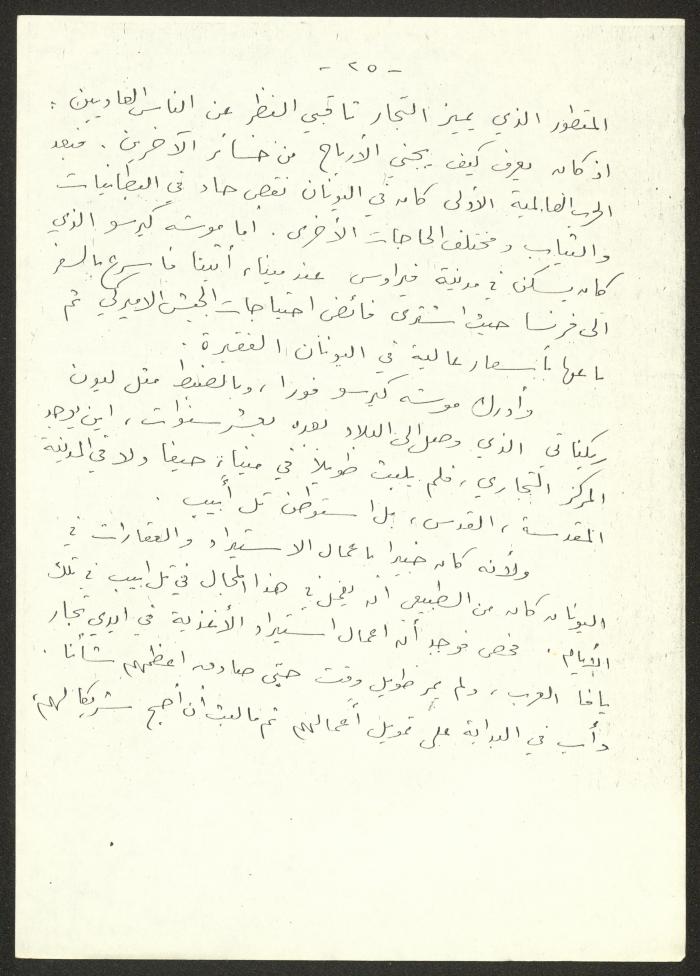 - ٢٥ -
المتطور الذي يميز التجار ثاقبي النظر عن الناس العاديين :
اذ كان يعرف كيف يجني الأرباح من خسائر الآخرين . فبعد
الحرب العالمية الأولى كان في اليونان نقص حاد في البطانيات
والثياب ومختلف الحاجات الأخرى . أما موشه كيرسو الذي
كان يسكن في مدينة فيراوس عند ميناء أثينا فاسرع بالسفر
الى فرنسا حيث اشترى فائض احتياجات الجيش الاميركي ثم
باعها بأسعار عالية في اليونان الفقيرة .
وأدرك موشه كيرسو فورا ، وبالضبط مثل ليون
ريكناتي الذي وصل الى البلاد بعده بعشر سنوات ، اين يوجد
المركز التجاري ، فلم يلبث طويلاً في ميناء حيفا ولا في المدينة
المقدسة ، القدس ، بل استوطن تل أبيب .
ولأنه كان خبيرا باعمال الاستيراد والعقارات في
اليونان كان من الطبيعي أن يعمل في هذا المجال في تل ابيب في تلك
الأيام . فحص فوجد أن اعمال استيراد الأغذية في ايدي تجار
يافا العرب ، ولم يمر طويل وقت حتى صادق اعظمهم شأنا .
دأب في البداية على تمويل أعمالهم ثم ما لبث أن أصبح شريكا لهم ،